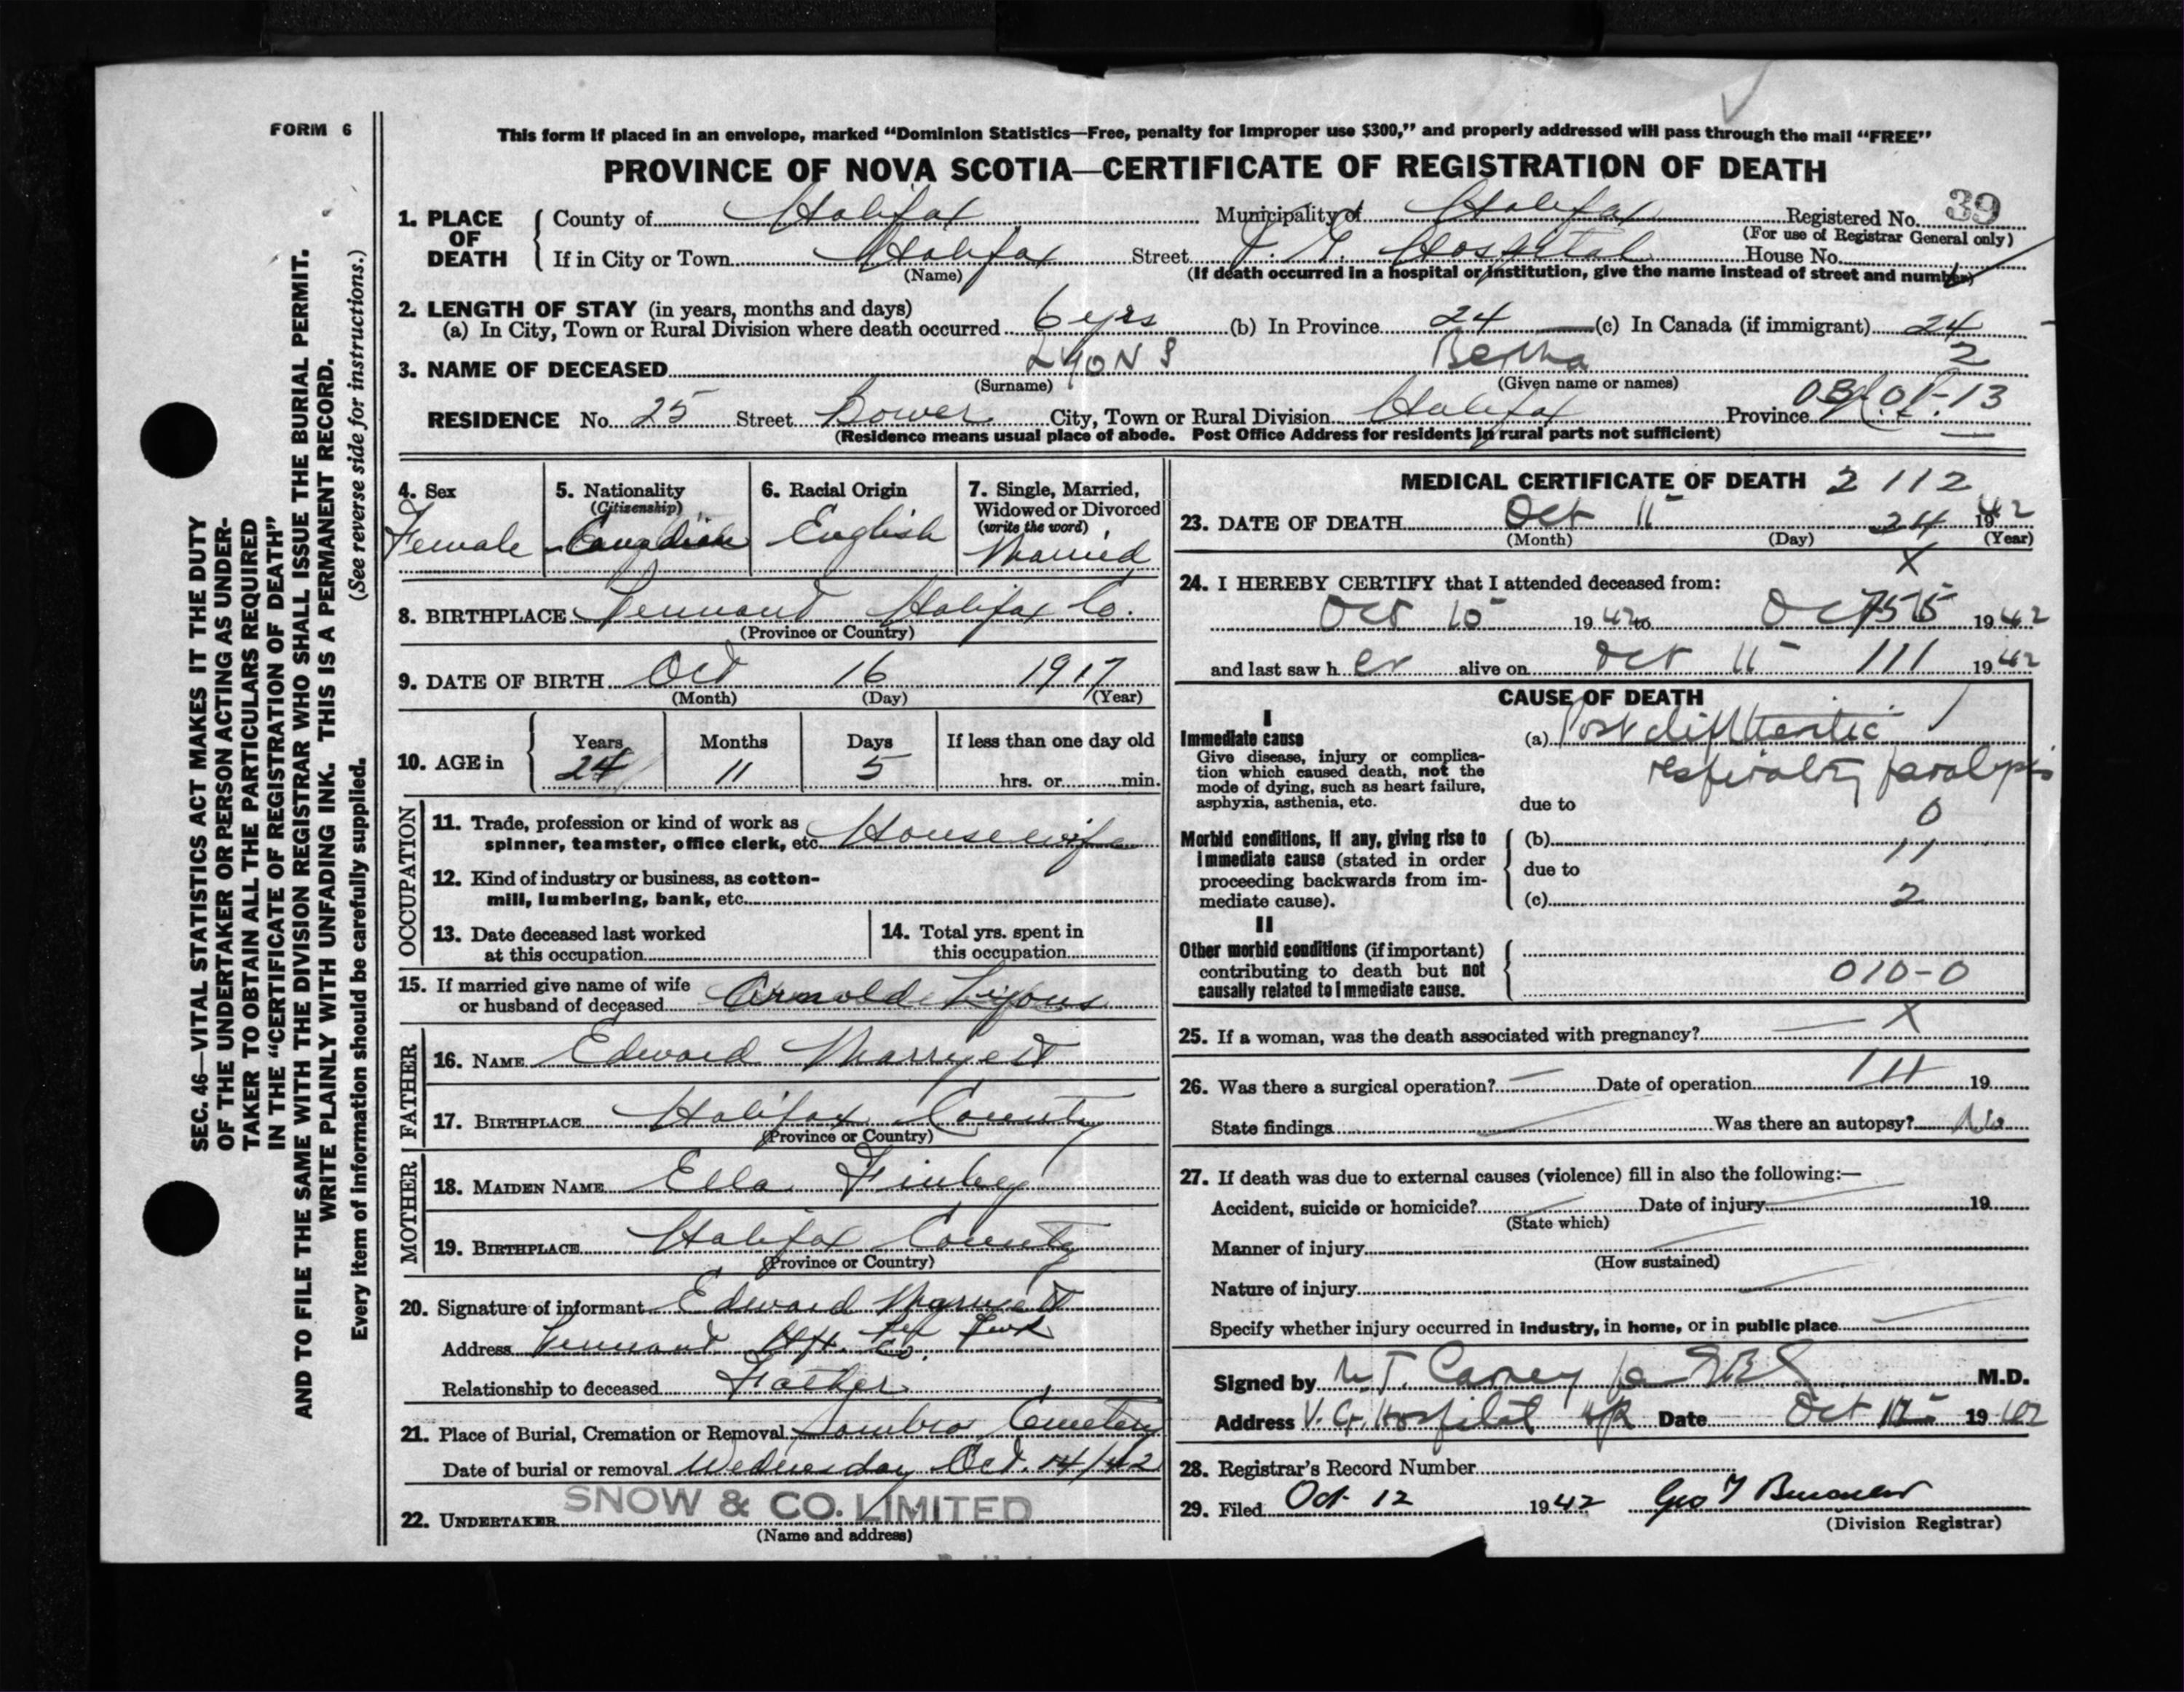 FORM 6
This form if placed in an envelope, marked “Dominion Statistics—Free, penalty for improper use $300,” and properly addressed will pass through the mail “FREE”
PROVINCE OF NOVA SCOTIA—CERTIFICATE OF REGISTRATION OF DEATH
SEC. 46—VITAL STATISTICS ACT MAKES IT THE DUTY
OF THE UNDERTAKER OR PERSON ACTING AS UNDER-
TAKER TO OBTAIN ALL THE PARTICULARS REQUIRED
IN THE “CERTIFICATE OF REGISTRATION OF DEATH”
AND TO FILE THE SAME WITH THE DIVISION REGISTRAR WHO SHALL ISSUE THE BURIAL PERMIT.
WRITE PLAINLY WITH UNFADING INK. THIS IS A PERMANENT RECORD.
Every item of information should be carefully supplied. (See reverse side for instructions.)
1. PLACE OF DEATH
County of Halifax Municipality of Halifax Registered No. 39
(For use of Registrar General only)
If in City or Town Halifax Street V. G. Hospital House No.
(Name) (If death occurred in a hospital or institution, give the name instead of street and number)
2. LENGTH OF STAY (in years, months and days)
(a) In City, Town or Rural Division where death occurred 6 yrs (b) In Province 24 (c) In Canada (if immigrant) 24
3. NAME OF DECEASED LYONS Bertha 2
(Surname) (Given name or names)
RESIDENCE No. 25 Street Bower City, Town or Rural Division Halifax Province N.S.
(Residence means usual place of abode. Post Office Address for residents in rural parts not sufficient)
4. Sex
Female
5. Nationality
(Citizenship)
Canadian
6. Racial Origin
English
7. Single, Married,
Widowed or Divorced
(write the word)
Married
8. BIRTHPLACE Pennant Halifax Co.
(Province or Country)
9. DATE OF BIRTH Oct 16 1917
(Month) (Day) (Year)
10. AGE in
Years Months Days If less than one day old
24 11 5 hrs. or min.
OCCUPATION
11. Trade, profession or kind of work as
spinner, teamster, office clerk, etc. Housewife
12. Kind of industry or business, as cotton-
mill, lumbering, bank, etc.
13. Date deceased last worked
at this occupation
14. Total yrs. spent in
this occupation
15. If married give name of wife
or husband of deceased Arnold Lyons
FATHER
16. NAME Edward Marryett
17. BIRTHPLACE Halifax County
(Province or Country)
MOTHER
18. MAIDEN NAME Ella Finley
19. BIRTHPLACE Halifax County
(Province or Country)
20. Signature of informant Edward Marryett
Address Pennant Hfx. Co.
Relationship to deceased Father
21. Place of Burial, Cremation or Removal Sambro Cemetery
Date of burial or removal Wednesday Oct. 14/42
22. UNDERTAKER SNOW & CO. LIMITED
(Name and address)
MEDICAL CERTIFICATE OF DEATH 2 112
23. DATE OF DEATH Oct 11 24 1942
(Month) (Day) (Year)
X
24. I HEREBY CERTIFY that I attended deceased from:
Oct 10 1942 to Oct 1942
and last saw her alive on Oct 11 111 1942
CAUSE OF DEATH
I
Immediate cause
Give disease, injury or complica-
tion which caused death, not the
mode of dying, such as heart failure,
asphyxia, asthenia, etc.
(a) Post diphtheritic
respiratory paralysis
due to
0
Morbid conditions, if any, giving rise to
immediate cause (stated in order
proceeding backwards from im-
mediate cause).
(b)
11
due to
(c) 2
II
Other morbid conditions (if important)
contributing to death but not
causally related to immediate cause.
010-0
25. If a woman, was the death associated with pregnancy? — X
26. Was there a surgical operation? — Date of operation 19
State findings Was there an autopsy? No
27. If death was due to external causes (violence) fill in also the following:—
Accident, suicide or homicide? Date of injury 19
(State which)
Manner of injury
(How sustained)
Nature of injury
Specify whether injury occurred in industry, in home, or in public place
Signed by M.D.
Address V. G. Hospital Hfx Date Oct 1942
28. Registrar's Record Number
29. Filed Oct 12 1942 Geo
(Division Registrar)